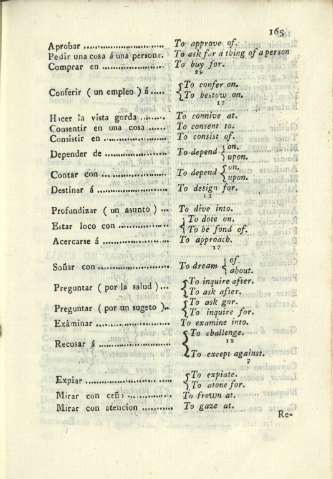 165
Aprobar ........................ To approve of.
Pedir una cosa á una persona. To ask for a thing of a person
Comprar en .................. To buy for.
Conferir ( un empleo ) á ..... { To confer on.
To bestow on.
17
Hacer la vista gorda ........ To connive at.
Consentir en una cosa ...... To consent to.
Consistir en .................. To consist of.
Depender de .................. To depend { on.
upon.
Contar con .................... To depend { on.
upon.
Destinar á .................... To design for.
Profundizar ( un asunto ) ... To dive into.
Estar loco con ............... { To dote on.
To be fond of.
Acercarse á ................... To approach.
17
Soñar con ...................... To dream { of
about.
Preguntar ( por la salud ) ... { To inquire after.
To ask after.
Preguntar ( por un sugeto ).. { To ask for.
To inquire for.
Exâminar ...................... To examine into.
Recusar á ..................... { To challenge.
12
To except against.
7
Expiar .......................... { To expiate.
To atone for.
Mirar con ceño ............... To frown at.
Mirar con atencion ........... To gaze at.
Re-